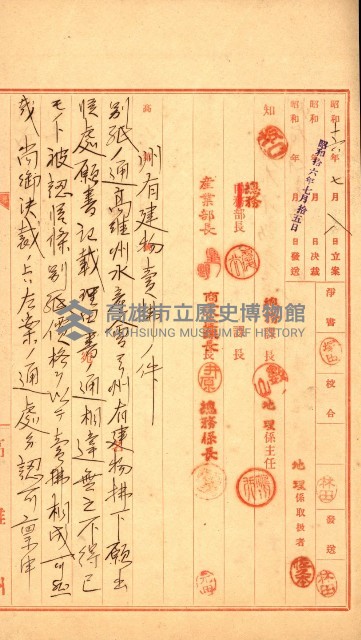 昭和十六年七月八日立案
昭和 年 月 日決裁
昭和 年 月 日發送
昭和拾六年七月拾五日
淨書
校合
林田
發送
林田
地理係取扱者
知事
總務部長
產業部長
總務課長
地理係主任
商工課長
井原
總務係長
高雄市立歷史博物館
KAOHSIUNG MUSEUM OF HISTORY
高
州有建物賣拂ノ件
別紙ノ通高雄州水產會ヨリ州有建物拂下願出
候處願書記載理由書ノ通相違無之不得已
モノト被認候條別紙價格ヲ以テ賣拂相成可然
哉尚御決裁ノ上ハ左案ノ通處分認可稟申
高雄州